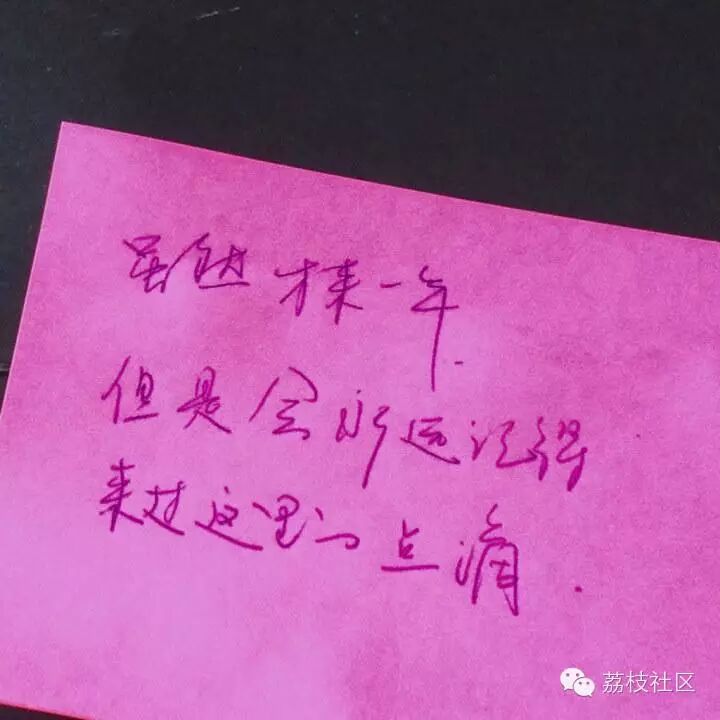 虽然才来一年.
但是会永远记得
来过这里的点滴.
荔枝社区